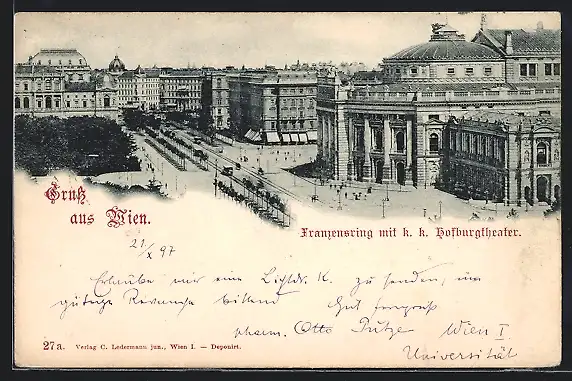 Gruß
aus Wien.
Franzensring mit k. k. Hofburgtheater.
21/X 97
Erlaube mir eine Lichtdr. K. zu senden, um
gütige Revanche bittend Gut
pharm. Otto Wien I
Universität
27a. Verlag C. Ledermann jun., Wien I. — Deponirt.